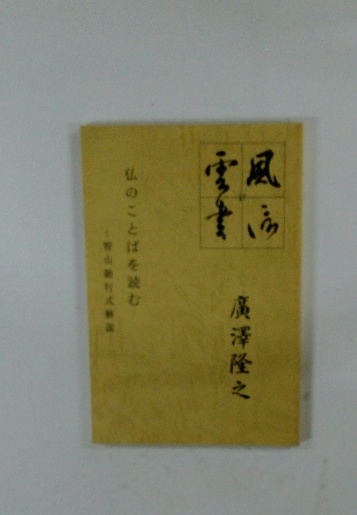 風信
雲書
廣澤隆之
仏のことばを読む
―智山勤行式解説―